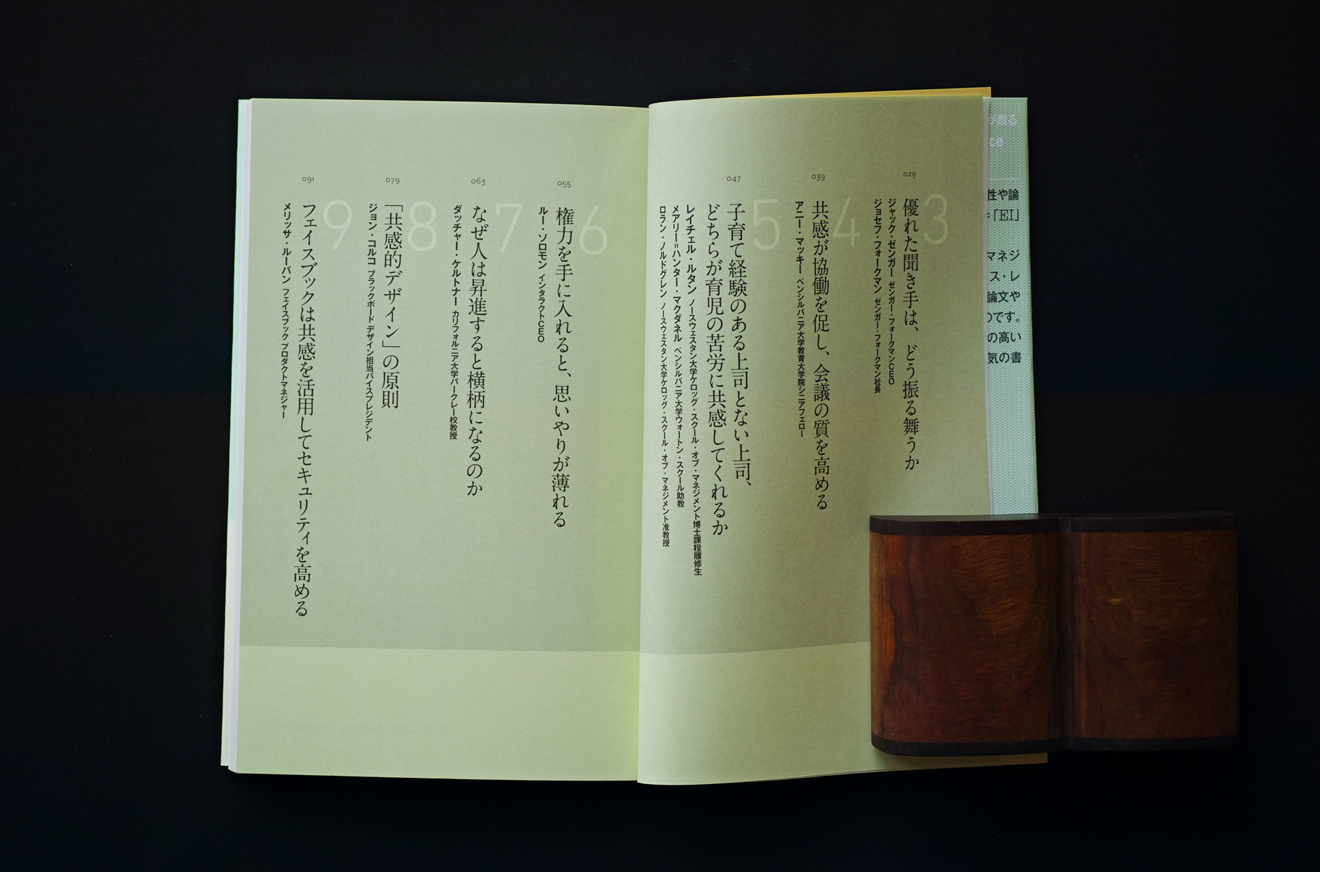 029
3
優れた聞き手は、どう振る舞うか
ジャック・ゼンガー ゼンガー・フォークマンCEO
ジョセフ・フォークマン ゼンガー・フォークマン社長
039
4
共感が協働を促し、会議の質を高める
アニー・マッキー ペンシルバニア大学教育大学院シニアフェロー
047
5
子育て経験のある上司とない上司、
どちらが育児の苦労に共感してくれるか
レイチェル・ルタン ノースウェスタン大学ケロッグ・スクール・オブ・マネジメント博士課程履修生
メアリー=ハンター・マクダネル ペンシルバニア大学ウォートン・スクール助教
ロラン・ノルドグレン ノースウェスタン大学ケロッグ・スクール・オブ・マネジメント准教授
055
6
権力を手に入れると、思いやりが薄れる
ルー・ソロモン インタラクトCEO
063
7
なぜ人は昇進すると横柄になるのか
ダッチャー・ケルトナー カリフォルニア大学バークレー校教授
079
8
「共感的デザイン」の原則
ジョン・コルコ ブラックボード デザイン担当バイスプレジデント
091
9
フェイスブックは共感を活用してセキュリティを高める
メリッサ・ルーバン フェイスブック プロダクトマネジャー
が贈る
ce
性や論
「EI」
マネジ
ス・レ
論文や
のです。
の高い
気の書